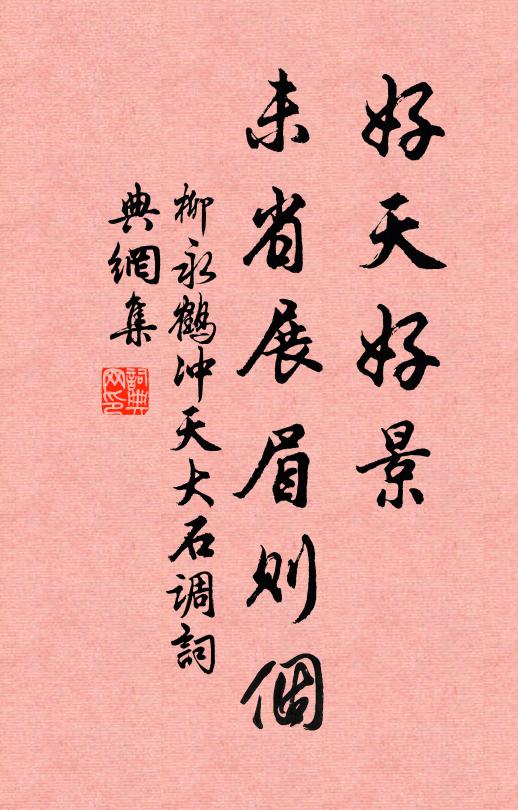 好天好景
未省展眉則個
柳永鶴冲天大石调詞
典網集
詞典網印